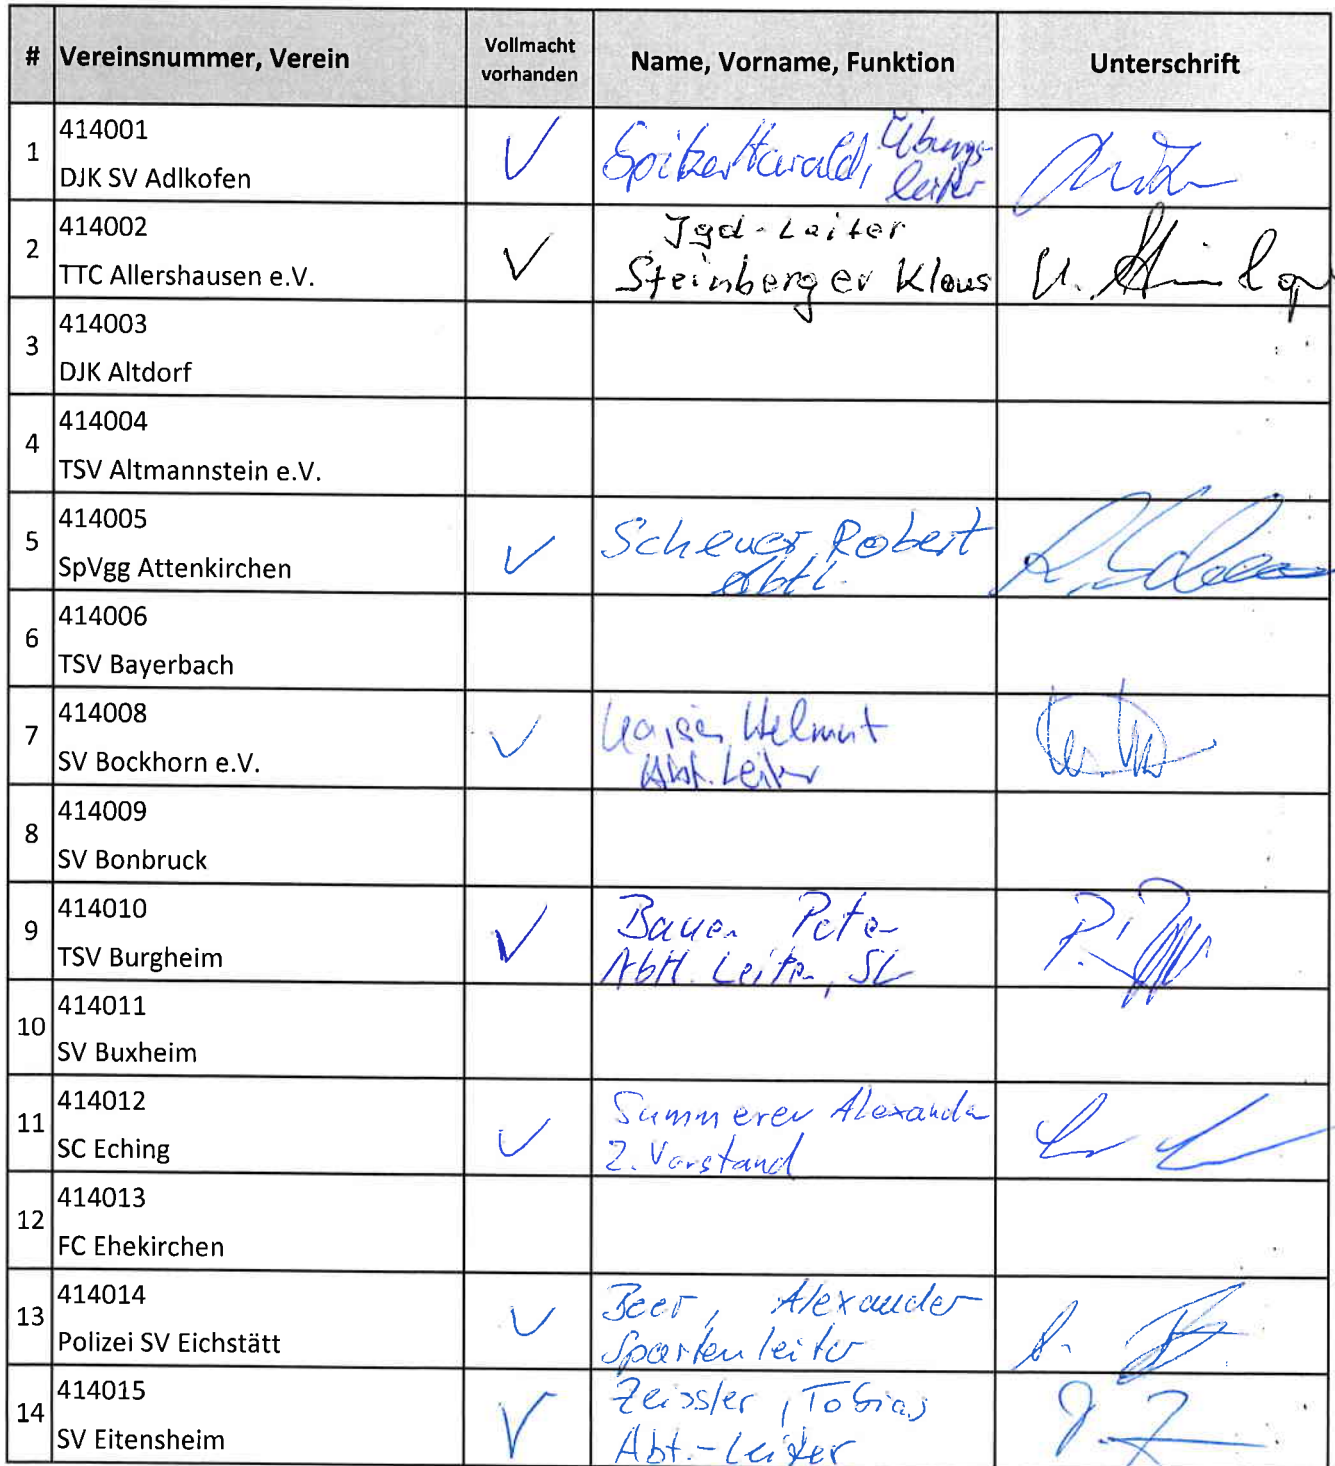 # Vereinsnummer, Verein Vollmacht vorhanden Name, Vorname, Funktion Unterschrift
1 414001 DJK SV Adlkofen Spitzer Harald, Übungsleiter
2 414002 TTC Allershausen e.V. Jgd-Leiter Steinberger Klaus
3 414003 DJK Altdorf
4 414004 TSV Altmannstein e.V.
5 414005 SpVgg Attenkirchen Scheuer, Robert Abtl.
6 414006 TSV Bayerbach
7 414008 SV Bockhorn e.V. Kaiser, Helmut Abt. Leiter
8 414009 SV Bonbruck
9 414010 TSV Burgheim Bauer Peter Abtl. Leiter, SL
10 414011 SV Buxheim
11 414012 SC Eching Summerer Alexander 2. Vorstand
12 414013 FC Ehekirchen
13 414014 Polizei SV Eichstätt Beer, Alexander Spartenleiter
14 414015 SV Eitensheim Zeissler, Tobias Abt.-Leiter